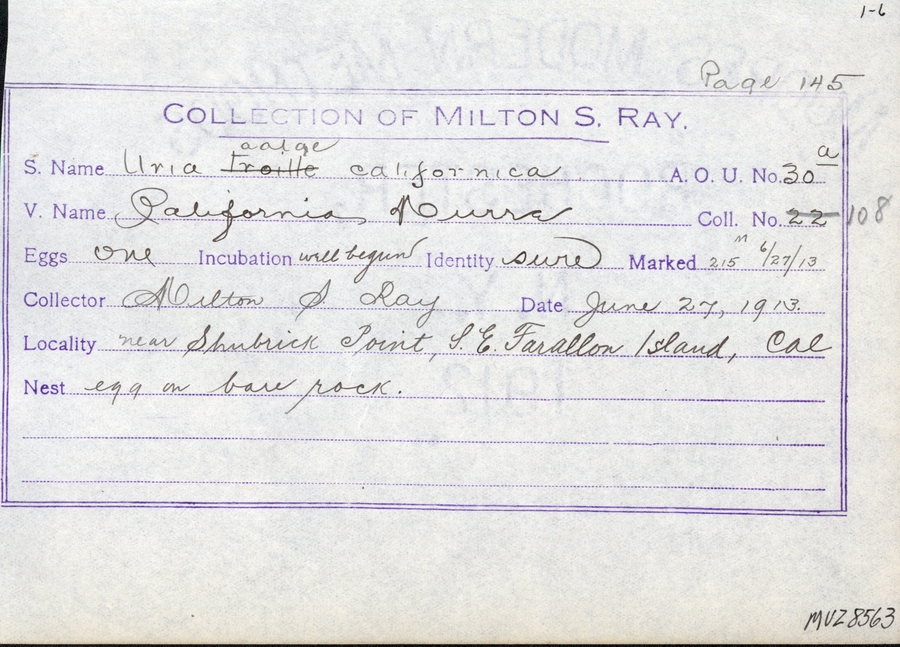 1-6
Page 145
COLLECTION OF MILTON S. RAY.
aalge
S. Name Uria troille californica A. O. U. No. 30 a
V. Name California Murre Coll. No. 22 108
Eggs one Incubation well begun Identity sure Marked 215 M 6/27/13
Collector Milton S. Ray Date June 27, 1913.
Locality near Shubrick Point, S. E. Farallon Island, Cal
Nest egg on bare rock.
MVZ8563